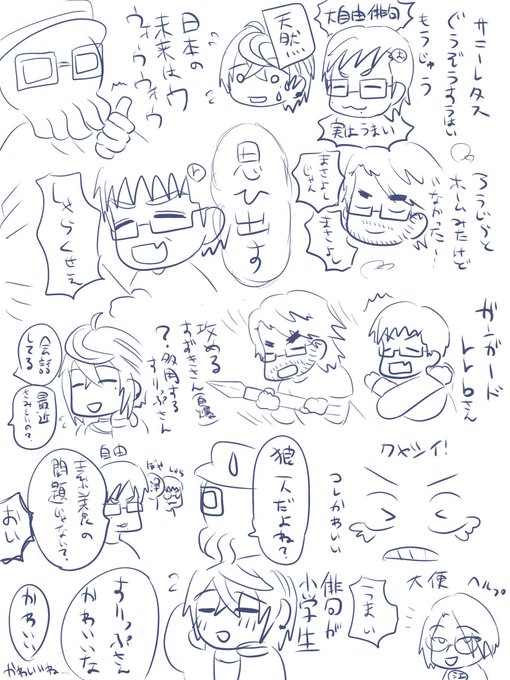 サニーレタス
ぐうぞうすうはい
もうじゅう
大自由俳句
実はうまい
天然
日本の
未来はウ
ウォウウォウ
ろうじっと
ホームみたけど
いなかった…!
まさよし
じゃん
まさよし
思ひ出す
と
しゃらくせえ
ガーガード
トトロさん
攻める
すずきさん
？多用する
すりっぷさん
会話
してる
最近
さみしいの？
クヤシイ!
コレかわいい
狼一人だよね？
自由
問題じゃない？
おい
大便 ヘルプ
うまい
俳句が
小学生
すりっぷさん
かわいいな
かわいい
かわいいね…